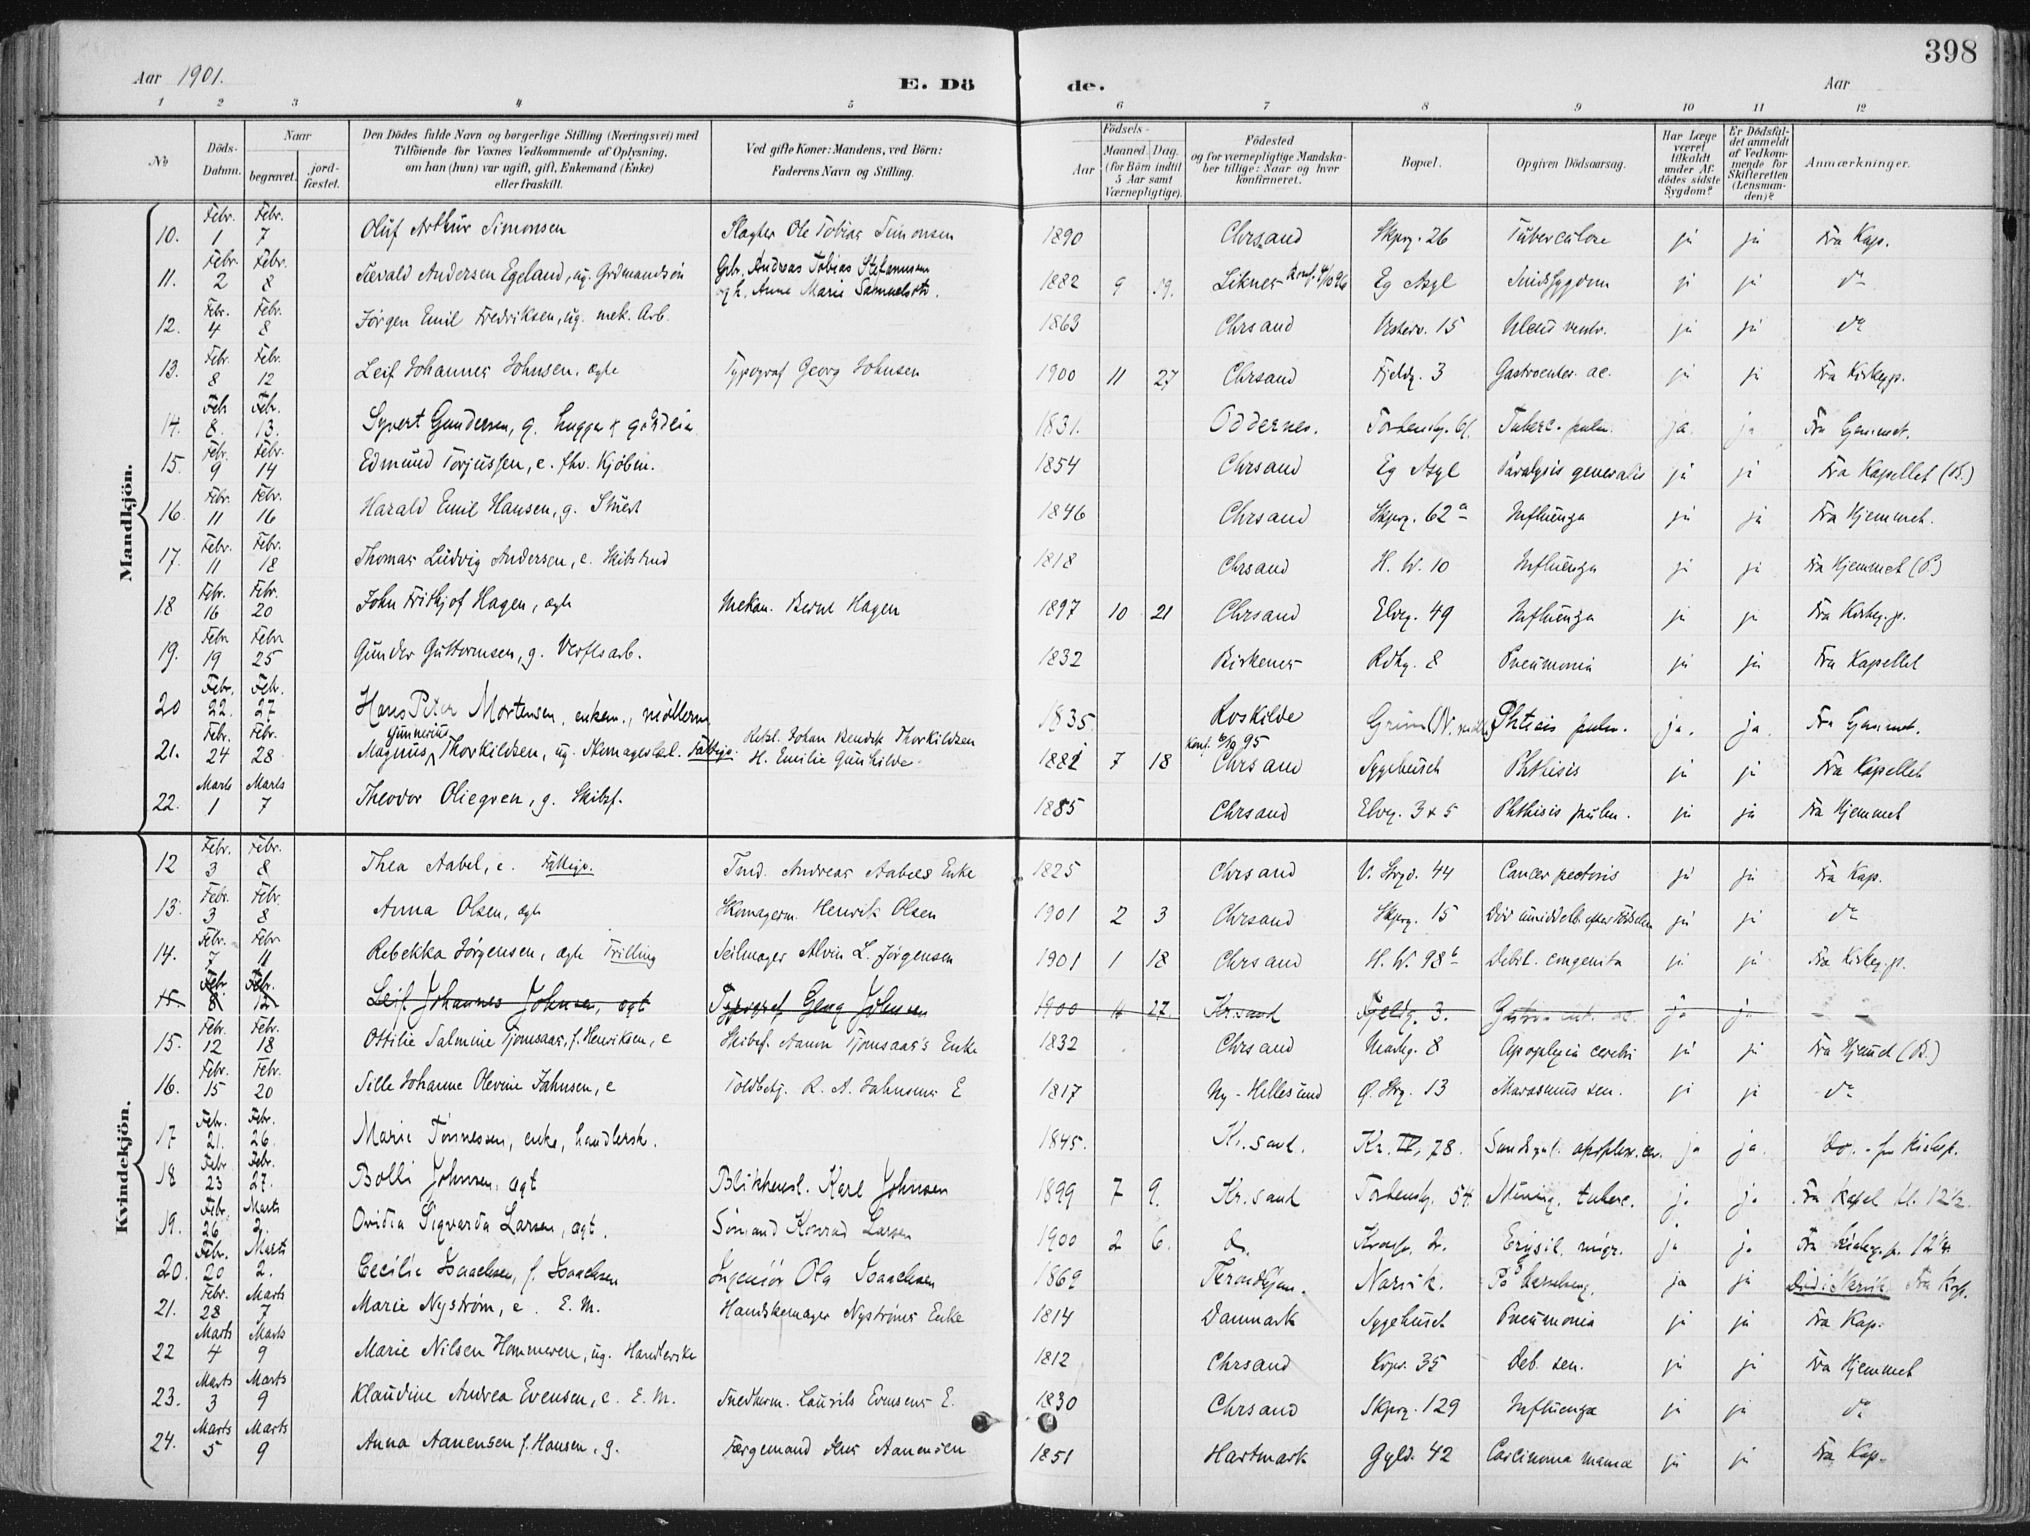 398
Aar 1901. E. Dö de. Aar
1 2 3 4 5 6 7 8 9 10 11 12
No
Döds-Datum.
Naar begravet. jordfæstet.
Den Dödes fulde Navn og borgerlige Stilling (Næringsvei) med
Tilföiende for Voxnes Vedkommende af Oplysning,
om han (hun) var ugift, gift, Enkemand (Enke)
eller fraskilt.
Ved gifte Koner: Mandens, ved Börn:
Faderens Navn og Stilling.
Födsels-
Aar Maaned Dag.
(for Börn indtil
5 Aar samt
Værnepligtige).
Födested
og for værnepligtige Mandska-
ber tillige: Naar og hvor
konfirmeret.
Bopæl.
Opgiven Dödsaarsag.
Har Læge
været
tilkaldt
under Af-
dödes sidste
Sygdom?
Er Dödsfal-
det anmeldt
af Vedkom-
mende for
Skifteretten
(Lensman-
den)?
Anmærkninger.
Mandkjön.
10. Febr. 1 Febr. 7 Oluf Arthur Simonsen Slagter Ole Tobias Simonsen 1890 Chrsand Skprg. 26 Tuberculose ja ja Fra Kap.
11. Febr. 2 Febr. 8 Sievald Andersen Egeland, ug. Grdmandssön Gbr. Andreas Tobias Stefanussen
og h. Anne Marie Samuelsdtr. 1882 9 19. Liknes Konf. 4/10 96 Eg Asyl Sindssygdom ja ja do
12. Febr. 4 Febr. 8 Jörgen Emil Fredriksen, ug. mek. Arb. 1863 Chrsand Vesterv. 15 Ulcus ventr. ja ja do
13. Febr. 8 Febr. 12 Leif Johannes Johnsen, ægte Typograf Georg Johnsen 1900 11 27 Chrsand Fjeldg. 3 Gastroenter. ac. ja ja Fra Kirkegp.
14. Feb 8. Febr. 13. Syvert Gundersen, g. 1831. Oddernes. Tordensg. 61. Tuberc. pulm. ja ja Fra Hjemmet.
15. Febr. 9 Febr. 14 Edmund Torjussen, e. fhv. Kjöbm. 1854 Chrsand Eg Asyl Paralysis generalis ja ja Fra Kapellet (B.)
16. Febr. 11 Febr. 16 Harald Emil Hansen, g. Stuert 1846 Chrsand Skprg. 62a Influenza ja ja Fra Hjemmet.
17. Febr. 11 Febr. 18 Thomas Ludvig Andersen, e. Skibstmd 1818 Chrsand H. W. 10 Influenza ja ja Fra Hjemmet (B)
18 Febr. 16 Febr. 20 John Frithjof Hagen, ægte Mekan. Bernt Hagen 1897 10 21 Chrsand Elvg. 49 Influenza ja ja Fra Kirkeg.p.
19. Febr 19 Febr 25 Gunder Guttormsen, g. Verftsarb. 1832 Birkenes Rdhg. 8 Pneumonia ja ja Fra Kapellet
20 Febr. 22. Febr. 27 Hans Peter Mortensen, enkem., möllerm 1835 Roskilde Grim Phtisis pulm. ja. ja. Fra Hjemmet.
21. Febr. 24 Febr. 28 Magnus Gunnerius Thorkildsen, ug. Skomagerlærl. Fattigv. Rebsl. Johan Bendik Thorkildsen
H. Emilie Gunhilde 1881 7 18 Konf. 6/10 95
Chrsand Sygehuset Phthisis ja ja Fra Kapellet
22. Marts 1 Marts 7 Theodor Oliegren, g. Skibsf. 1885 Chrsand Elvg. 3 x 5 Phthisis pulm. ja ja Fra Hjemmet
Kvindekjön.
12 Febr. 3 Febr. 8 Thea Aabel, e. Fattigv. Tmd. Andreas Aabels Enke 1825 Chrsand V. Strg. 44 Cancer pectoris ja ja Fra Kap.
13. Febr. 3 Febr. 8 Anna Olsen, ægte Skomagerm. Henrik Olsen 1901 2 3 Chrsand Skprg. 15 Död umiddelb. efter Födselen ja ja do
14. Febr. 7 Febr 11 Rebekka Jörgensen, ægte Trilling Seilmager Alvin L. Jörgensen 1901 1 18 Chrsand H. W. 98b Debil. congenita ja ja Fra Kirkeg.p.
15 Febr 8 Febr. 12 Leif Johannes Johnsen, ægt Typograf Georg Johnsen 1900 11 27. Kr.sand Fjeldg. 3. Gastro-ent. ac. ja ja - -
15. Febr. 12 Febr. 18 Ottilie Salmine Tjomsaas, f. Henriksen, e Skibsf. Aanon Tjomsaas's Enke 1832 Chrsand Markg. 8 Apoplexia cerebri ja ja Fra Hjemmet (B.)
16. Febr. 15 Febr. 20 Sille Johanne Olevine Jahnsen, e Toldbetj. R. A. Jahnsens E 1817 Ny-Hellesund Ø. Strg. 13 Marasmus sen. ja ja do
17 Febr. 21. Febr. 26. Marie Tönnessen, enke, handlersk. 1845. Kr.sand. Kr. IV, 78. apoplex. cer. ja ja. Do. - fra Kirkegp.
18 Febr 23 Febr. 27. Bolli Johnsen, ægt Blikkensl. Karl Johnsen 1899 7 9. Kr.sand Tordensg. 54. Mening. tuberc. ja ja Fra Kapel kl. 12½.
19. Febr. 26 Marts 2. Ovidia Sigvarda Larsen, ægt. Sömand Konrad Larsen 1900 2 6. do. Erysil. migr. ja ja Fra Kirkeg.p. 12½
20. Febr. 20 Marts 2. Cecilie Isaachsen, f. Isaachsen Ingeniör Ola Isaachsen 1869 Trondhjem. Narvik. ja ja Död i Narvik Fra Kap.
21. Febr. 28 Marts 7 Marie Nyström, e. E. M. Handskemager Nyströms Enke 1814 Danmark Sygehuset Pneumonia ja ja Fra Kap.
22 Marts 4 Marts 9 Marie Nilsen Hommeren, ug. Handlerske 1812 Chrsand Kopr. 35 Deb. sen. ja ja Fra Hjemmet
23. Marts 3 Marts 9 Klaudine Andrea Evensen, e. E. M. Snedkerm. Laurits Evensens E. 1830 Chrsand Skprg. 129 Influenza ja ja do
24. Marts 5 Marts 9 Anna Aanensen f. Hansen, g. Færgemand Jens Aanensen 1851 Hartmark Gyld. 42 Carcinoma mamæ ja ja Fra Kap.